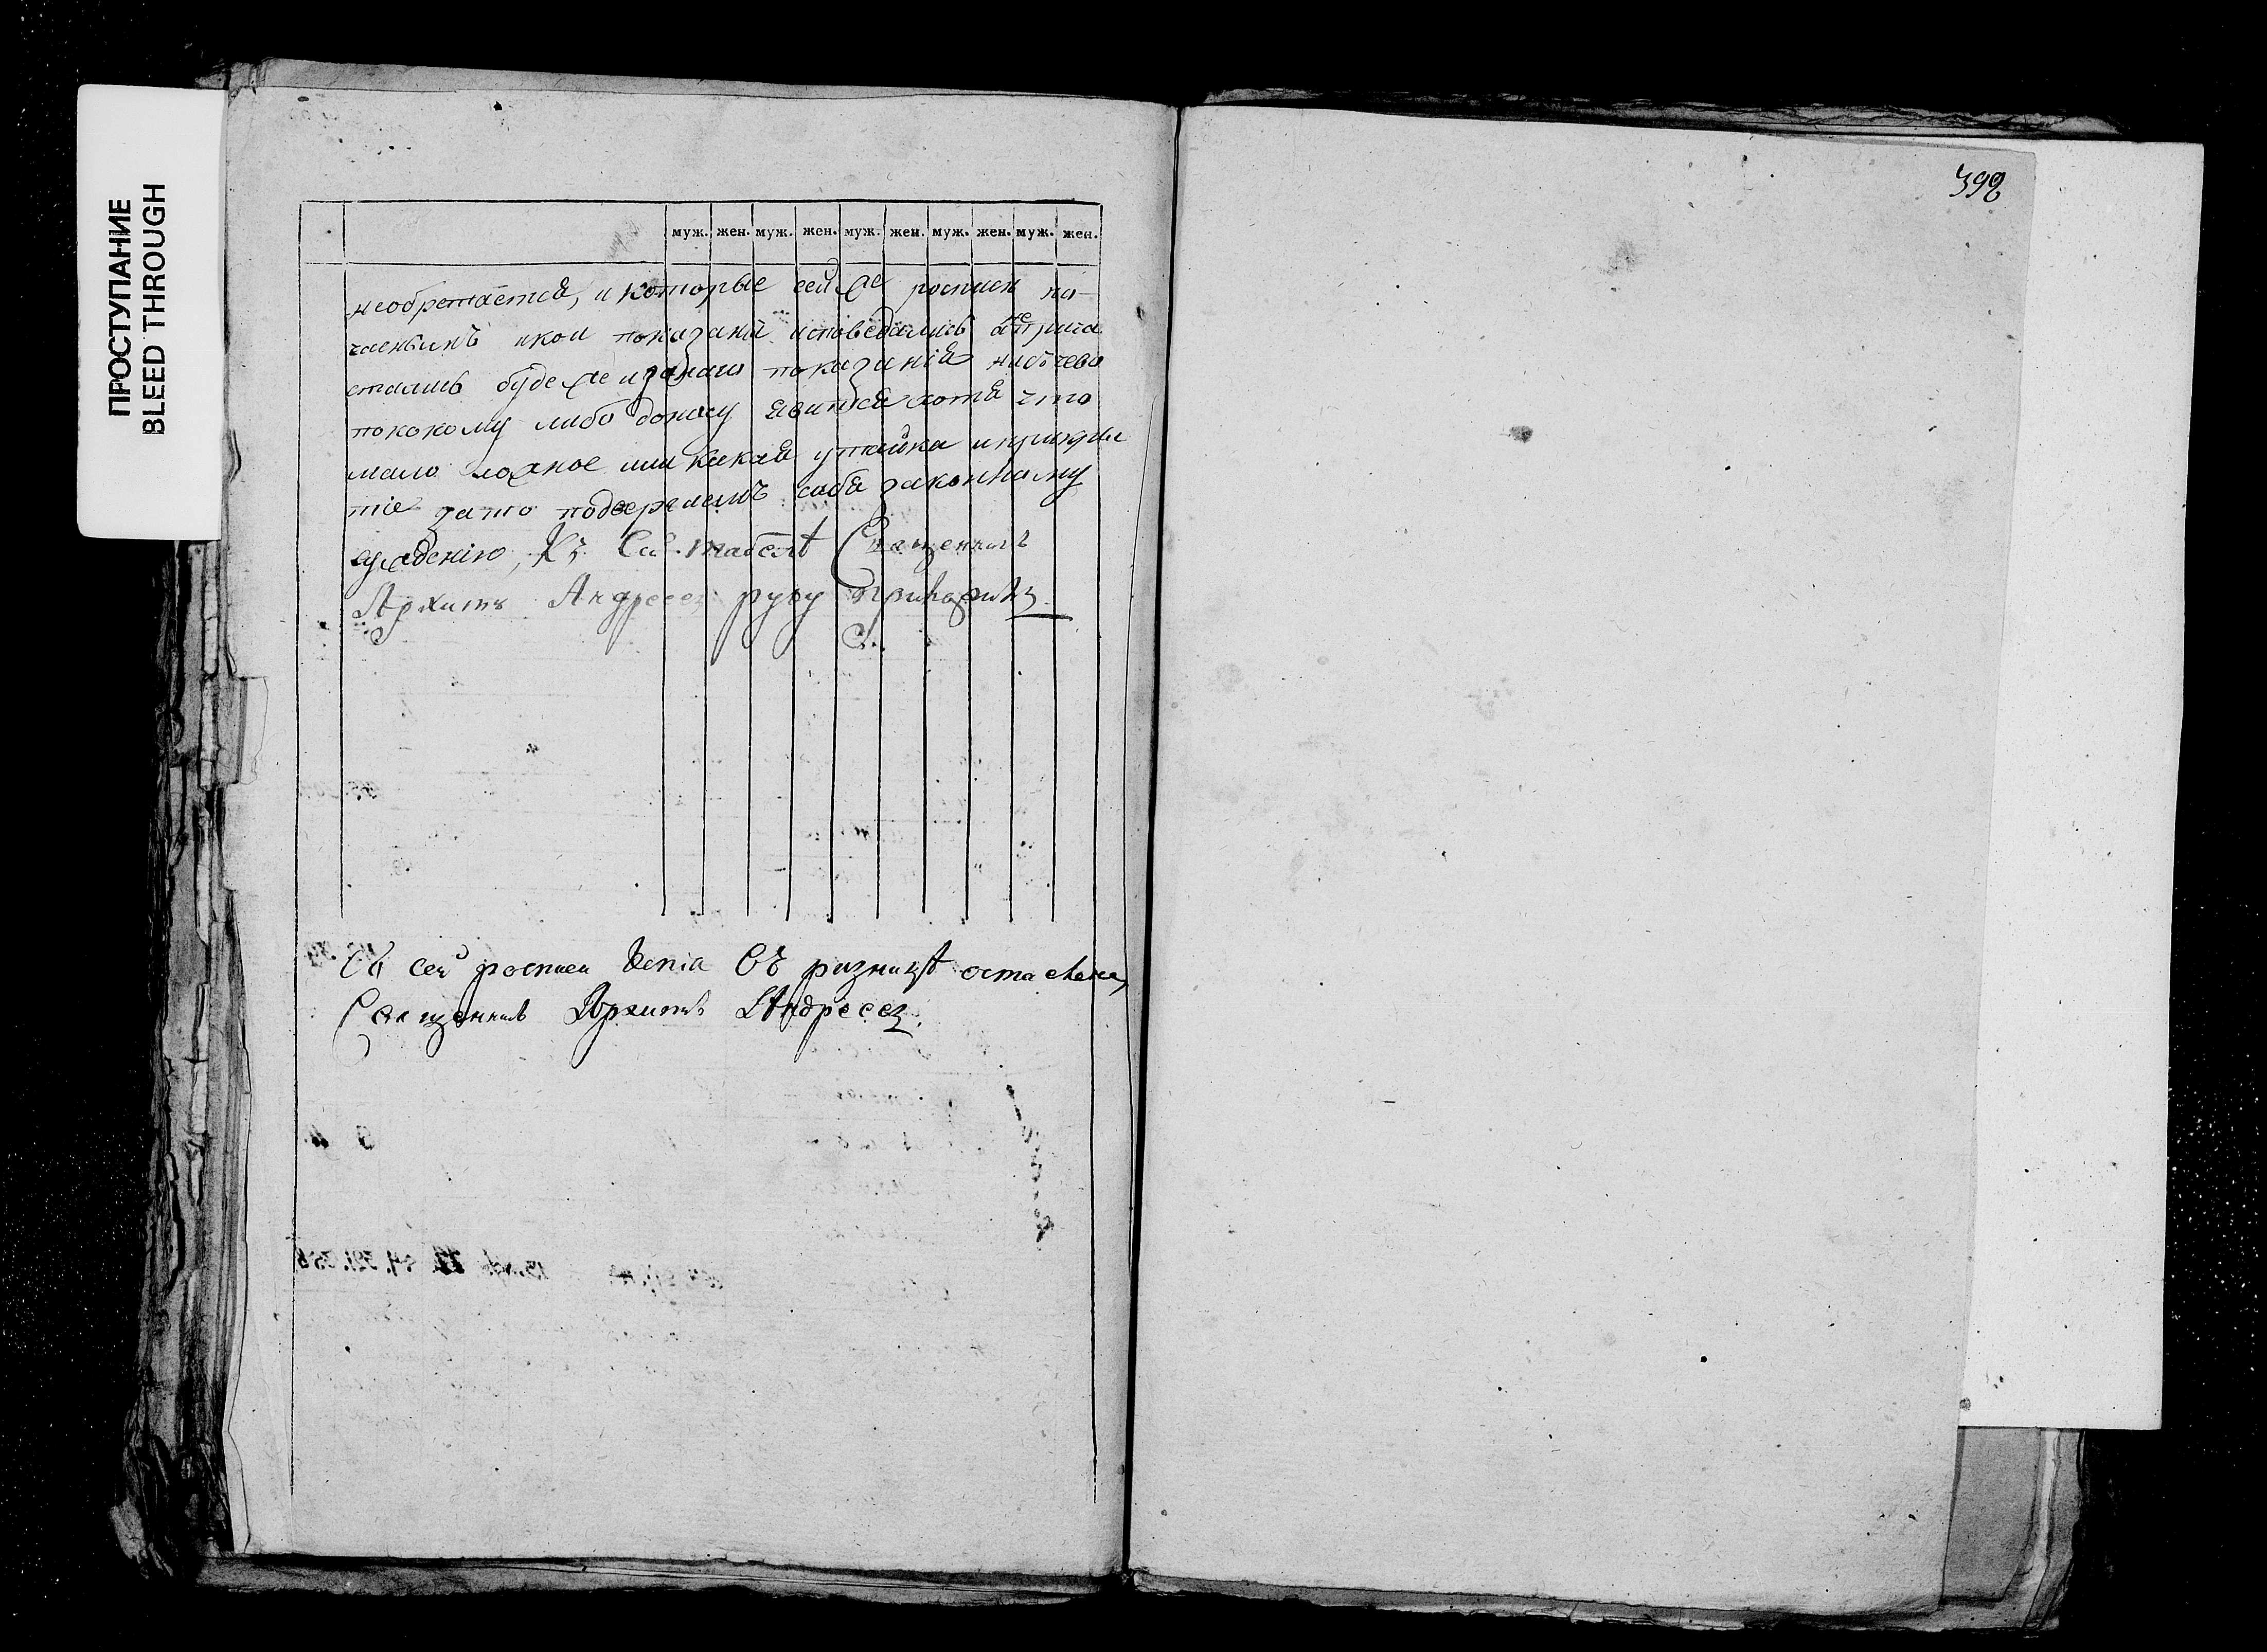 ПРОСТУПАНИЕ
BLEED THROUGH
398
муж. жен. муж. жен. муж. жен. муж. жен. муж. жен.
необретается, и которые сей же росписи на
показаны исповедались а не прича
стались буде же из оного показания ниъ чево
по какому либо доносу явится хотя что
мало ложное или какая утайка и прикры
тие за то подвержемъ себя законному
суждению, Къ сей табелѣ Священникъ
Архипъ Андреевъ руку приложилъ
Съ сей росписи копиа въ ризницѣ оставлена,
Священникъ Архипъ Андреевъ.